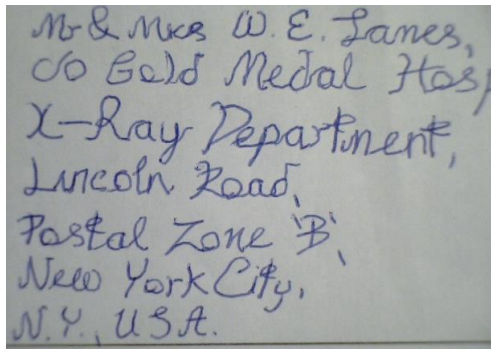 Mr & Mrs W. E. Lanes,
c/o Gold Medal Hosp
X-Ray Department,
Lincoln Road,
Postal Zone 'B',
New York City,
N.Y., USA.